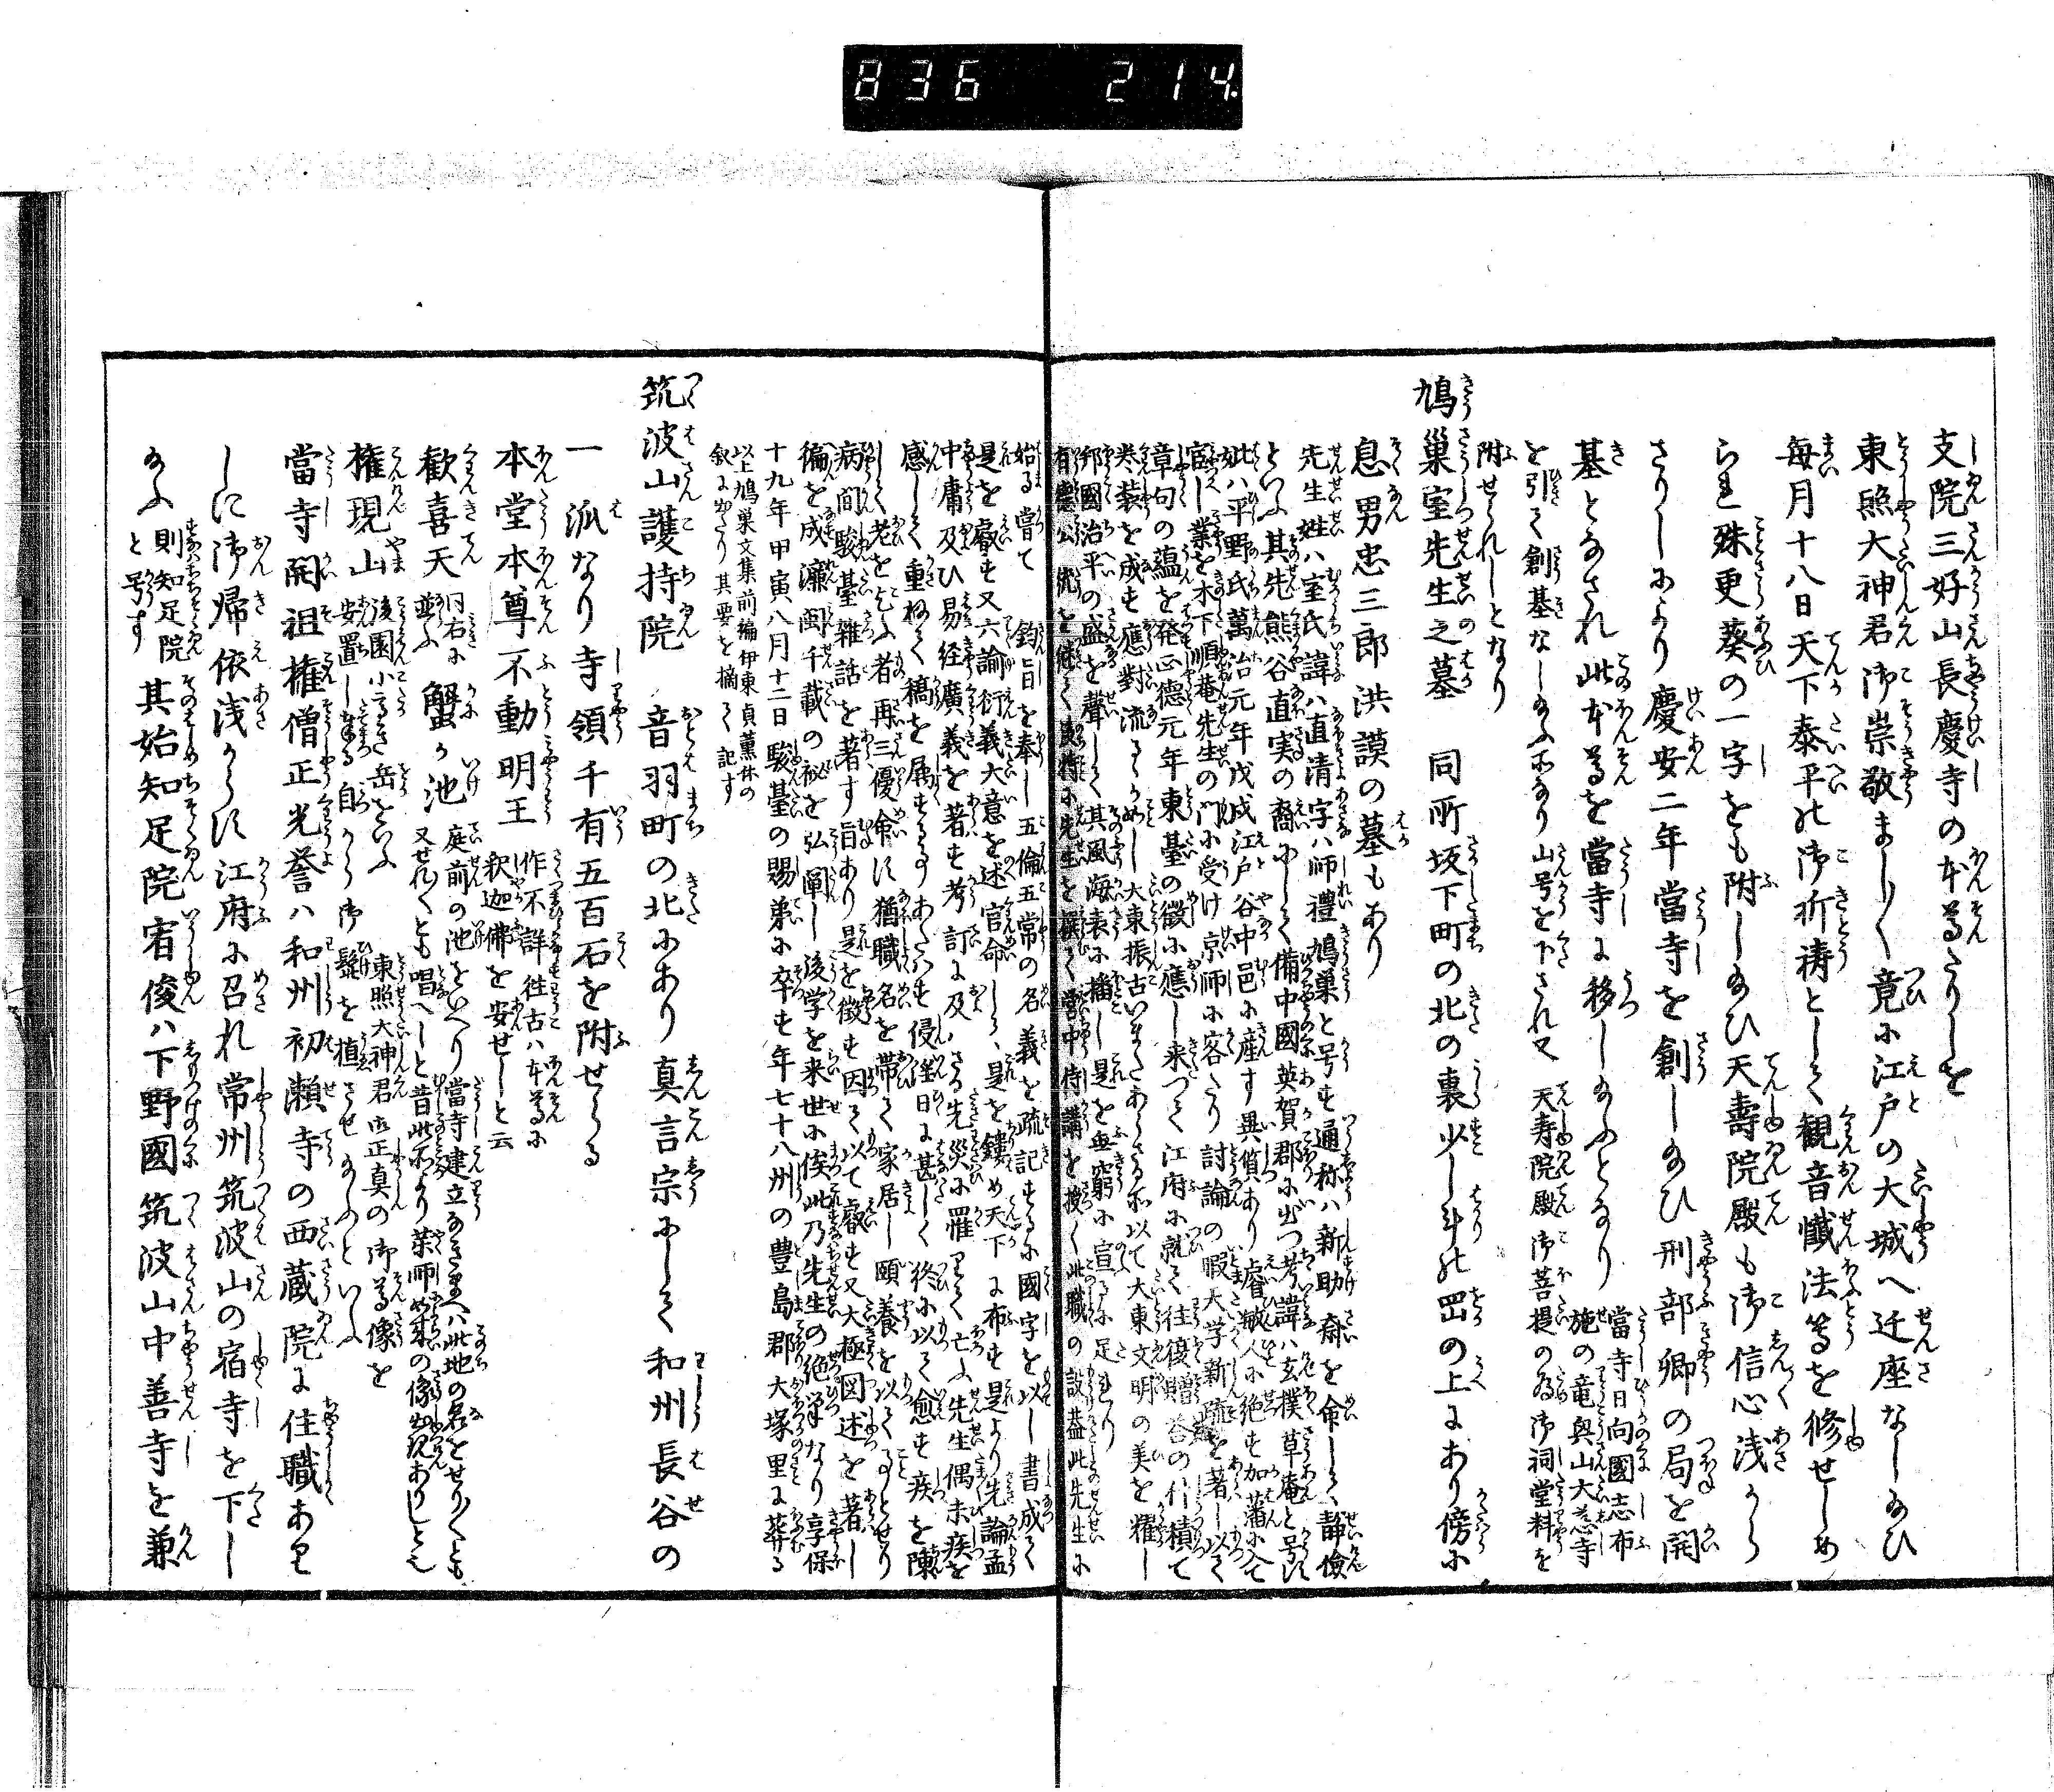 836 214.
支院三好山長慶寺の本尊たりしを
東照大神君御崇敬ましまして竟に江戸の大城へ迁座なし給ひ
毎月十八日天下泰平の御祈祷として観音懺法等を修せしめ
られ殊更葵の一字をも附し給ひ天壽院殿も御信心浅から
さりしにより慶安二年當寺を創し給ひ刑部卿の局を開
基となされ此本尊を當寺に移し給ふとなり
當寺日向國志布
施の竜興山大慈寺
を引て創基なし給ふ所なり山号を下され又天寿院殿御菩提の為御祠堂料を
附せられしとなり
鳩巣室先生之墓 同所坂下町の北の裏少し斗の岡の上にあり傍に
息男忠三郎洪謨の墓もあり
先生姓ハ室氏諱ハ直清字ハ師禮鳩巣と号す通称ハ新助斎を命して静儉
といふ其先熊谷直実の裔にして備中國英賀郡に出つ考諱ハ玄樸草庵と号す
妣ハ平野氏萬治元年戊戌江戸谷中邑に産す異質あり睿敏人に絶す加藩に入て
官し業を木下順庵先生の門に受け京師に客たり討論の暇大学新疏を著し以て
章句の蘊を発正徳元年東臺の徴に應し来つて江府に就く往復贈答の什積て
巻装を成す應對流るゝめし大東振古いまたあらさる所以て大東文明の美を耀し
邦國治平の盛を聲して其風海表に播し是を無窮に宣るに足れり
有徳公統を継て使特に先生を撰て営中侍講を授く此職の設蓋此先生に
始る嘗て 鈞旨を奉し五倫五常の名義を疏記するに國字を以し書成て
是を廠す又六諭衍義大意を述官命し是を鏤め天下に布す是より先論孟
中庸及ひ易経廣義を著す考訂に及ハさる先災に罹りて亡ふ先生偶末疾を
感して重ねて稿を属することあたハす侵淫日に甚しく終に以て愈す疾を陳
して老を乞ふ者再三優命す猶職名を帯て家居し頤養を以てすることせり
病間駿臺雑話を著す旨あり是を徴す因て以て廠す又大極図述を著し
編を成濂閩千載の秘を弘闡し後学を来世に俟此乃先生の絶筆なり享保
十九年甲寅八月十二日駿臺の賜第に卒す年七十八州の豊島郡大塚里に葬る
以上鳩巣文集前編伊東貞薫休の
叙に出たり其要を摘て記す
筑波山護持院 音羽町の北にあり真言宗にして和州長谷の
一派なり寺領千有五百石を附せらる
本堂本尊不動明王 作不詳往古ハ本尊に
釈迦佛を安せしと云
歓喜天 同右に
並ふ 蟹か池 庭前の池をいへり當寺建立なきまへハ此地の名とせりくとも
又せれくとも唱へしと昔此所より薬師如来の像出現ありしとも
権現山 後園小高き岳をいふ 東照大神君御正真の御尊像を
安置し奉る自から御鬚を植させ給ふといふ
當寺開祖権僧正光誉ハ和州初瀬寺の西蔵院に住職あり
しに御帰依浅からす江府に召れ常州筑波山の宿寺を下し
給ふ 則知足院
と号す 其始知足院宥俊ハ下野國筑波山中善寺を兼